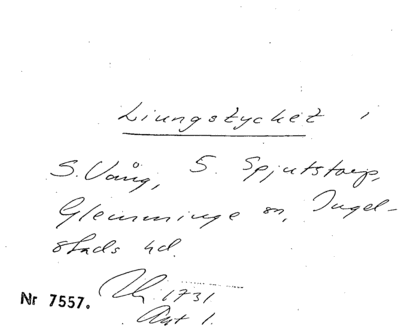 Liungstycket
S. Vång, 5. Spjutstorp,
Glemminge sn, Ingel-
stads hd.
Nr 7557. 1731
Akt 1.